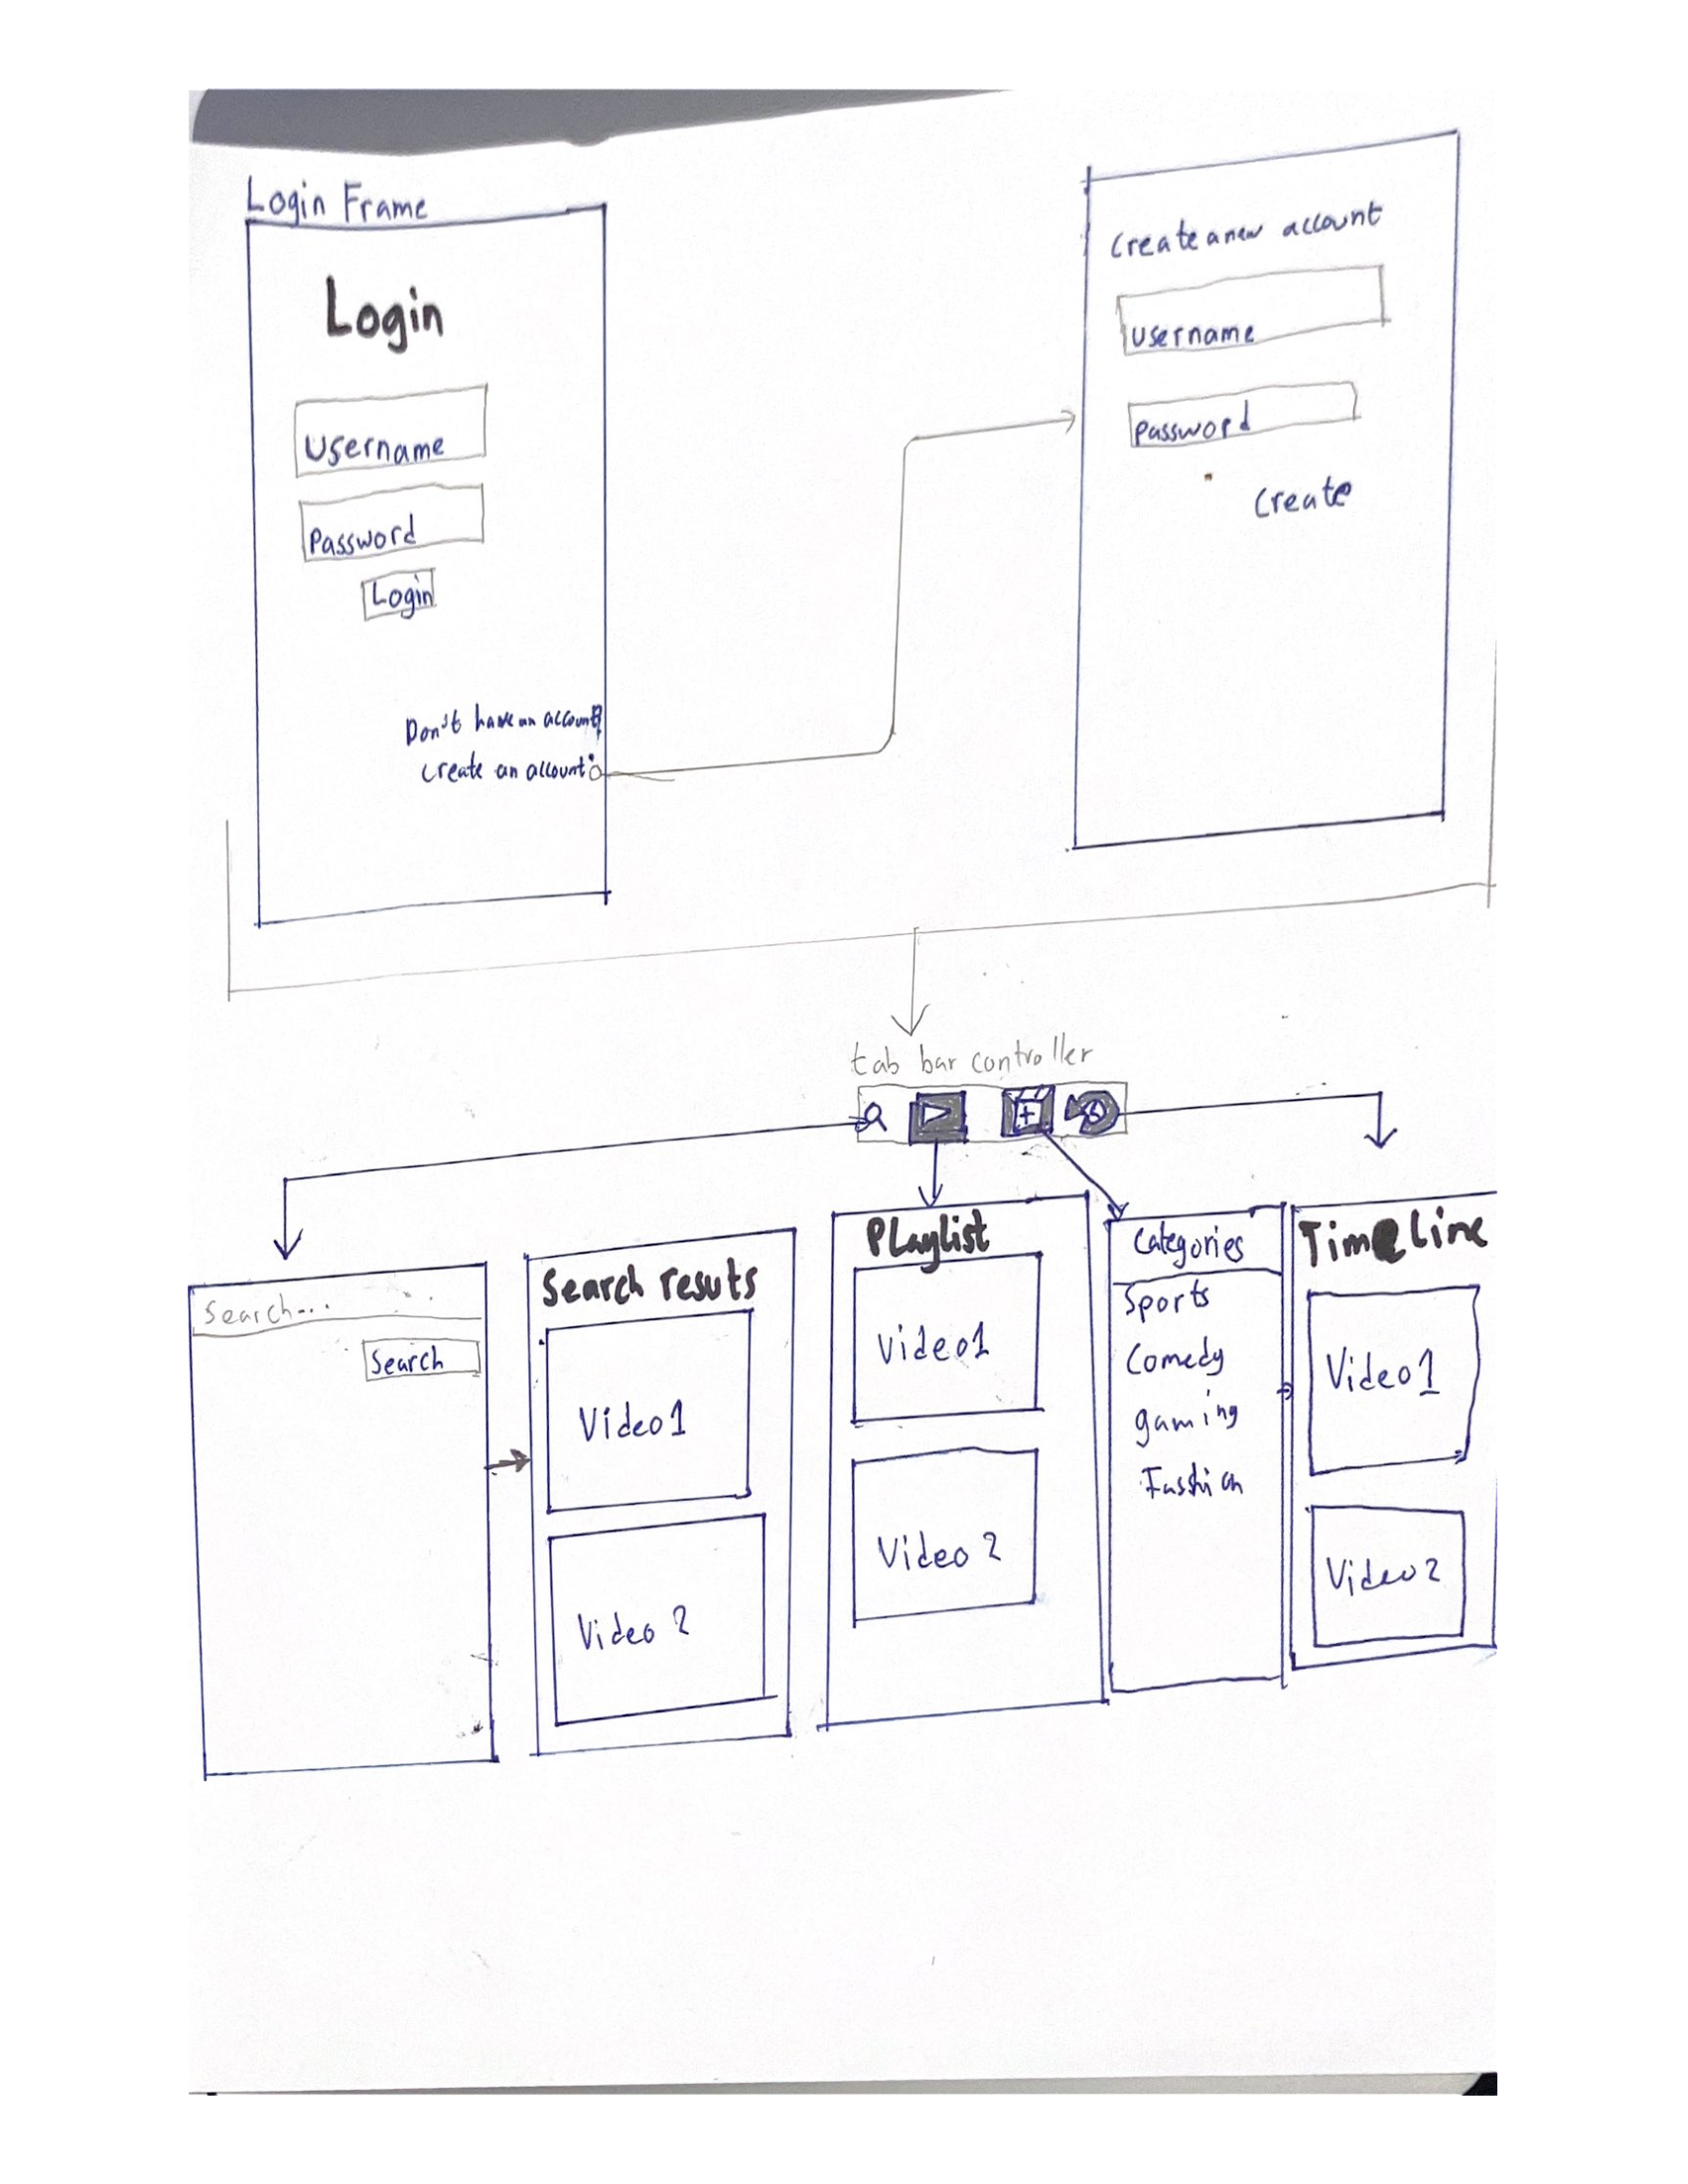 Login Frame
Login
Username
Password
Login
Don't have an account?
create an account
Create a new account
Username
Password
Create
tab bar controller
Search...
Search
Search resuts
Video1
Video 2
PLaylist
Video1
Video 2
Categories
Sports
Comedy
gaming
TimeLine
Video1
Video2